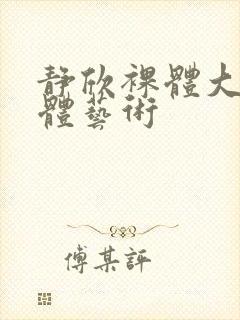 靜欣裸體大
體藝術
傅某評